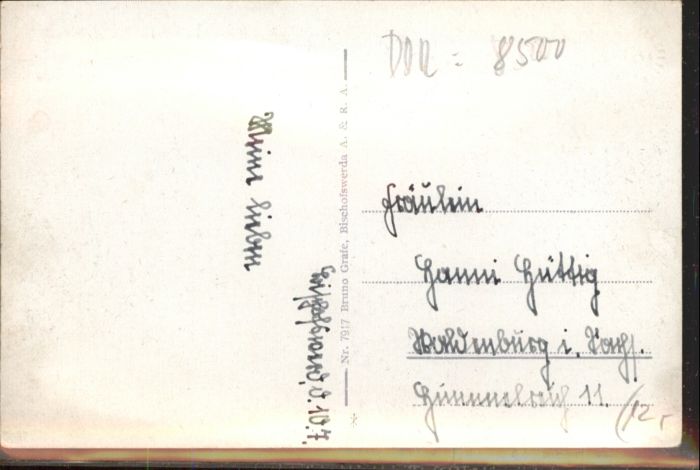 DDR = 8500
Meine Lieben
Bischofswerda, d. 10.7.
Nr. 7917 Bruno Grafe, Bischofswerda A. & R. A.
Fräulein
Hanni Hüttig
Waldenburg i. Sachs.
11.
12,